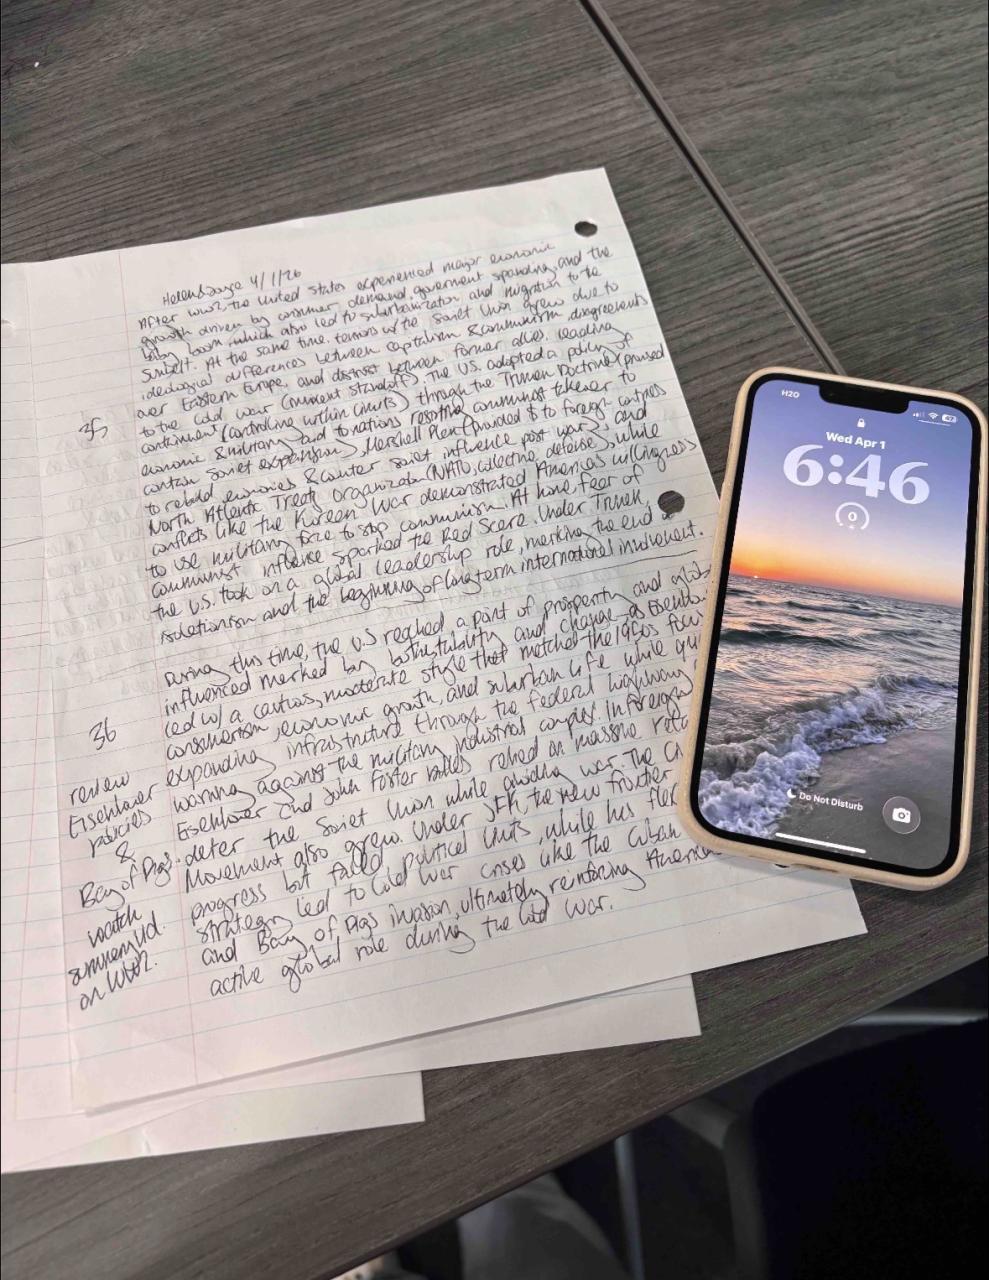 Helen 4/1/26
After WW2, the United States experienced major economic
growth driven by consumer demand, goverment spending, and the
baby boom, which also led to suburbanization and migration to the
sunbelt. At the same time, tensions w/ the Soviet Union grew due to
ideological differences between capitalism & communism, disagreements
over Eastern Europe, and distrust between former allies, leading
to the Cold War (nuclear standoff). The U.S. adopted a policy of
containment (controlling within limits) through the Truman Doctrine (
economic & military aid to nations resisting communist takeover to
contain Soviet expansion), Marshall Plan (provided $ to foreign
to rebuild economies & counter soviet influence post war), and
North Atlantic Treaty Organization (NATO, collective defense), while
conflicts like the Korean War demonstrated Americas willingness
to use military force to stop communism. At home, fear of
communist influence sparked the Red Scare. Under Truman
the U.S. took on a global leadership role, marking the end of
isolationism and the beginning of long term international involvement.
35
During this time, the U.S reached a point of prosperity and
influenced marked by both stability and change as
led w/ a cautious, moderate style that matched the 1950s
consumerism, economic growth, and suburban life while
expanding infrastruture through the federal highway
warning against the military industrial complex. In foreign
Eisenhower and John Foster Dulles relied on massive
deter the Soviet Union while avoiding war. The
Movement also grew. Under JFK, the new frontier
progress but faced political limits, while his
strategy led to Cold War crises like the Cuban
and Bay of Pigs invasion, ultimately reinforcing
active global role during the Cold War.
36
review
Eisenhower
policies
&
Bay of Pigs.
watch
summary vid.
on WW2.
H2O
42
Wed Apr 1
6:46
0
Do Not Disturb